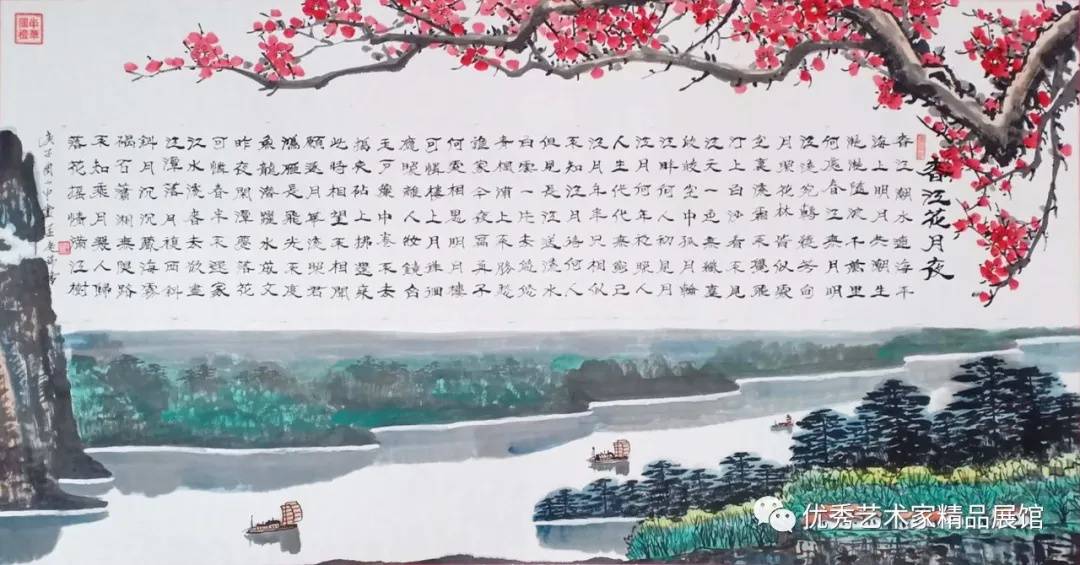 春江花月夜
春江潮水連海平
海上明月共潮生
灩灩隨波千萬里
何處春江無月明
江流宛轉繞芳甸
月照花林皆似霰
空裏流霜不覺飛
汀上白沙看不見
江天一色無纖塵
皎皎空中孤月輪
江畔何人初見月
江月何年初照人
人生代代無窮已
江月年年只相似
不知江月待何人
但見長江送流水
白雲一片去悠悠
青楓浦上不勝愁
誰家今夜扁舟子
何處相思明月樓
可憐樓上月徘徊
應照離人妝鏡台
玉戶簾中卷不去
搗衣砧上拂還來
此時相望不相聞
願逐月華流照君
鴻雁長飛光不度
魚龍潛躍水成文
昨夜閑潭夢落花
可憐春半不還家
江水流春去欲盡
江潭落月復西斜
斜月沉沉藏海霧
碣石瀟湘無限路
不知乘月幾人歸
落花搖情滿江樹
庚子
优秀艺术家精品展馆